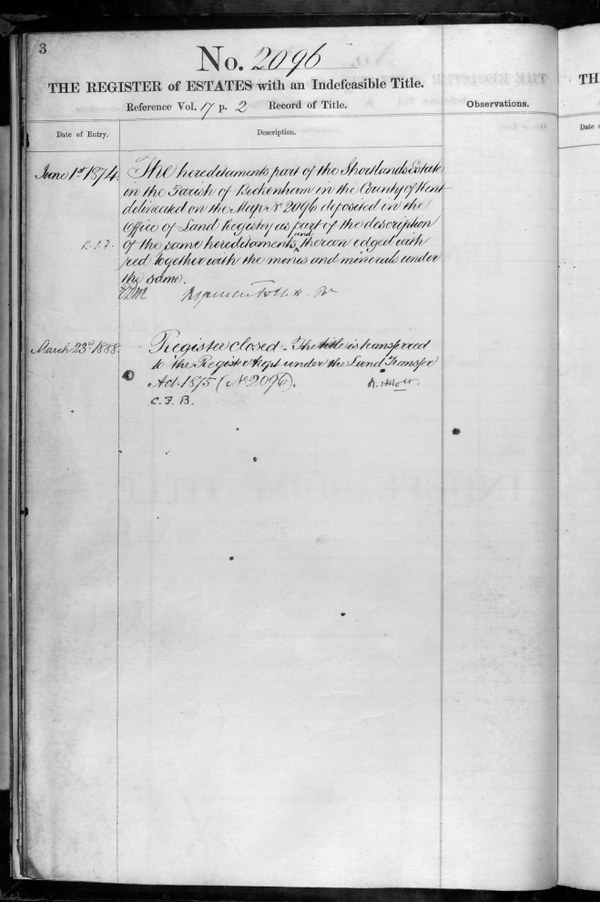 3
No. 2096
THE REGISTER of ESTATES with an Indefeasible Title.
Reference Vol. 17 p. 2 Record of Title.
Observations.
Date of Entry.
Description.
June 1st 1874.
The hereditaments part of the Shortlands Estate
in the Parish of Beckenham in the County of Kent
delineated on the Map No 2096 deposited in the
Office of Land Registry as part of the description
of the same hereditaments and thereon edged with
red together with the mines and minerals under
the same.
March 23d 1888.
Register closed. The title is transferred
to the Register kept under the Land Transfer
Act 1875 (No 2096).
C. F. B.
TH
Date o